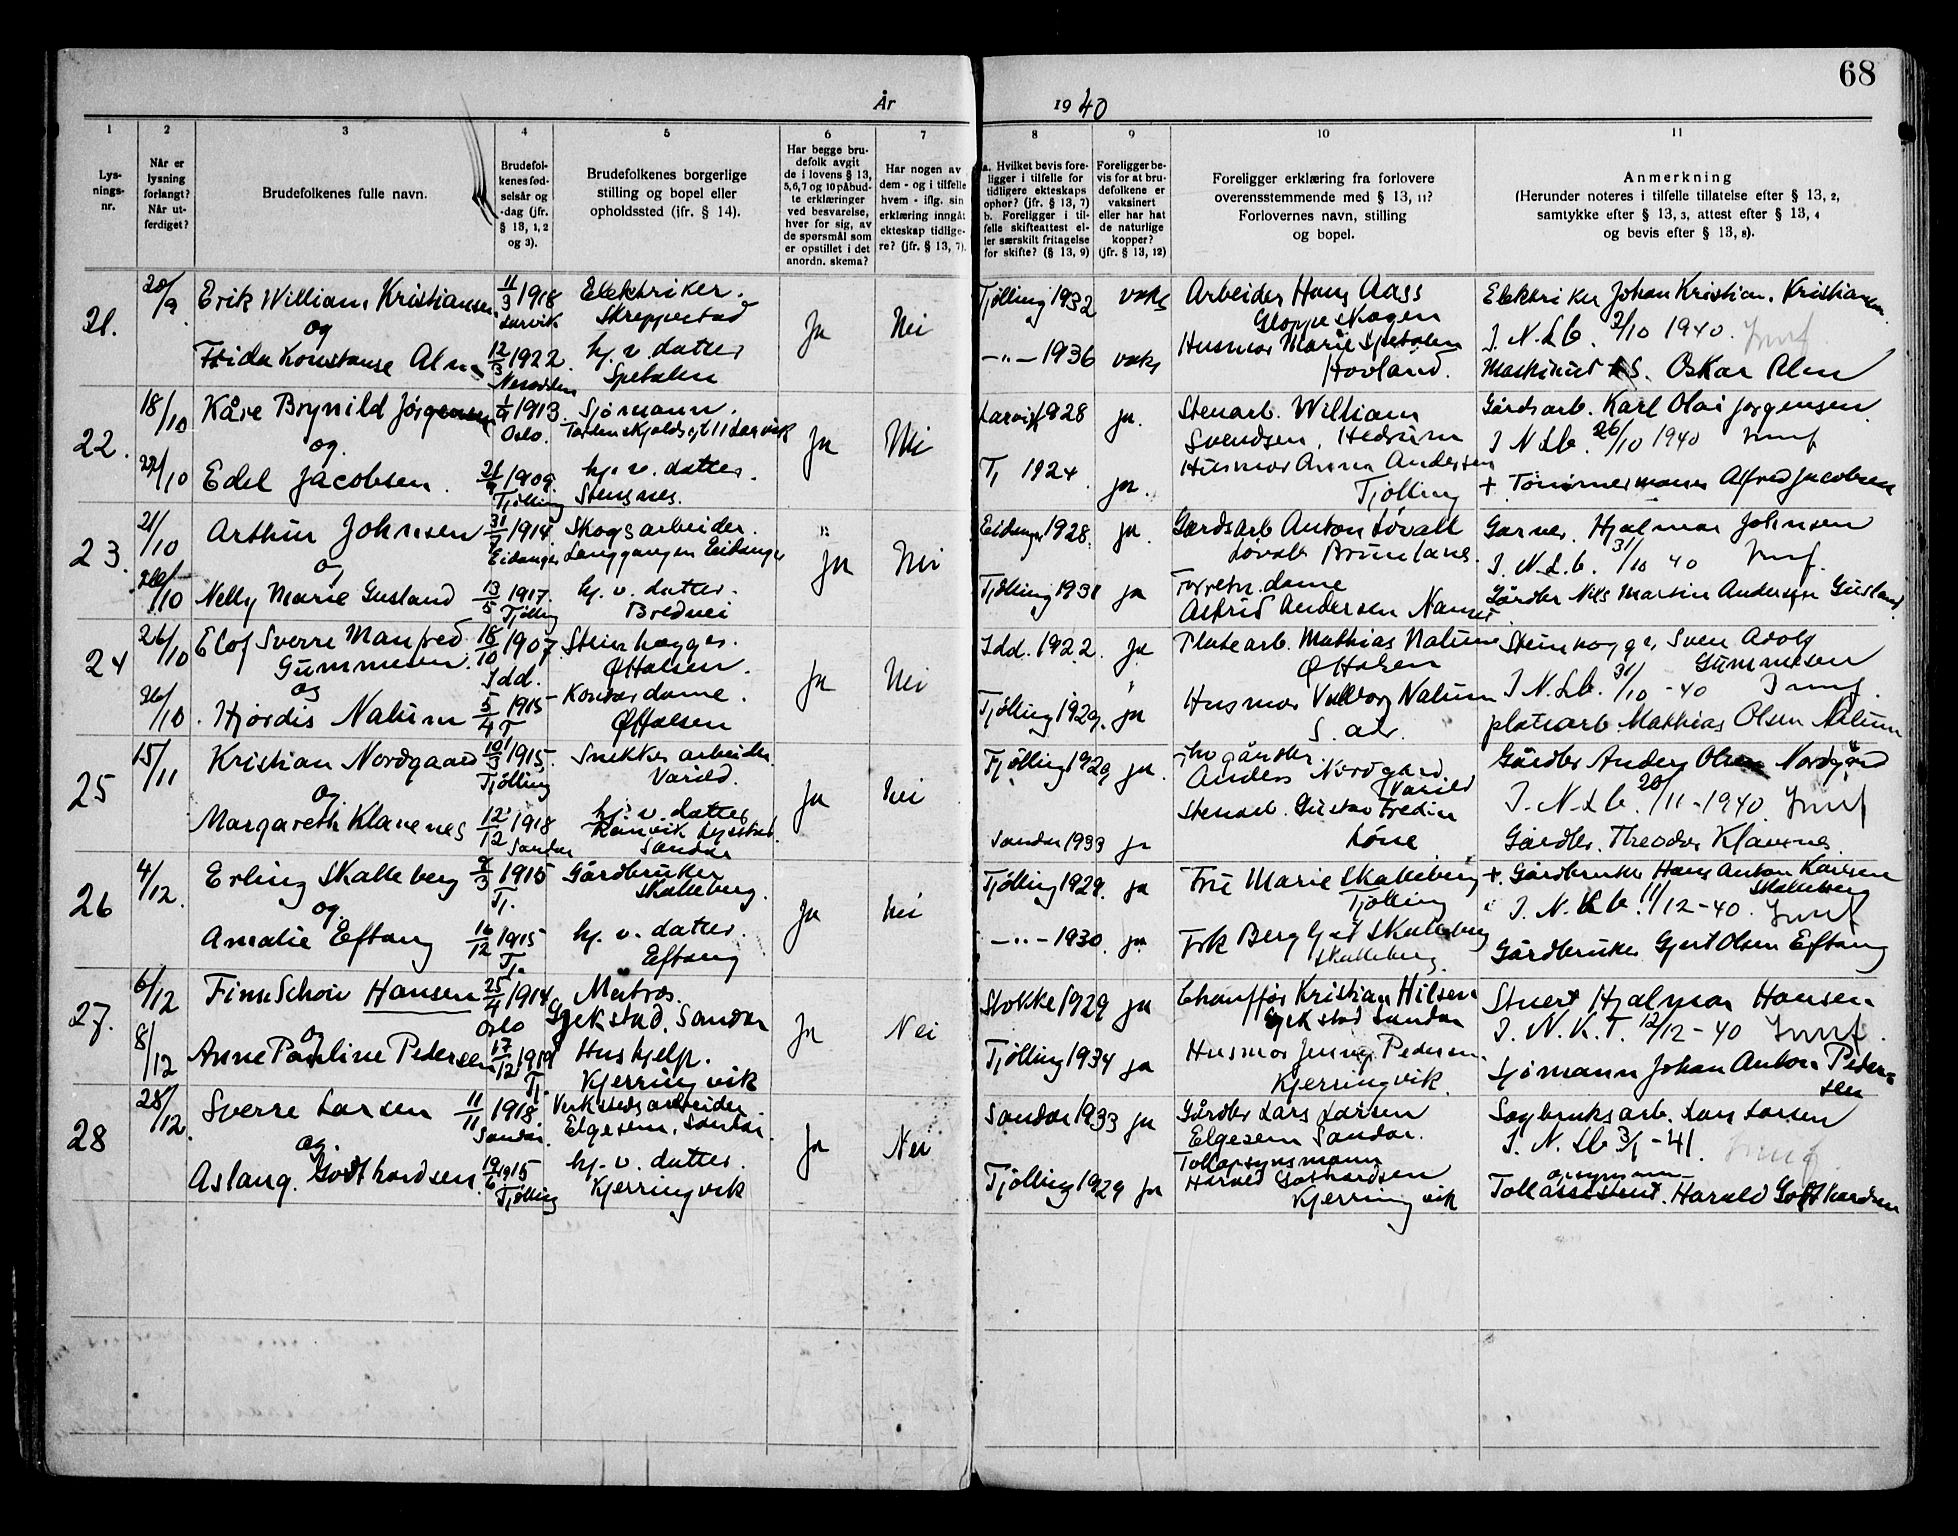 68
År 1940
1 2 3 4 5 6 7 8 9 10 11
Lys-
nings-
nr.
Når er
lysning
forlangt?
Når ut-
ferdiget?
Brudefolkenes fulle navn.
Brudefol-
kenes fød-
selsår og
-dag (jfr.
§ 13, 1, 2
og 3).
Brudefolkenes borgerlige
stilling og bopel eller
opholdssted (jfr. § 14).
Har begge bru-
defolk avgit
de i lovens § 13,
5,6,7 og 10 påbud-
te erklæringer
ved besvarelse,
hver for sig, av
de spørsmål som
er opstillet i det
anordn. skema?
Har nogen av
dem - og i tilfelle
hvem - iflg. sin
erklæring inngåt
ekteskap tidlige-
re? (jfr. § 13, 7).
a. Hvilket bevis fore-
ligger i tilfelle for
tidligere ekteskaps
ophør? (jfr. § 13, 7)
b. Foreligger i til-
felle skifteattest el-
ler særskilt fritagelse
for skifte? (§ 13, 9)
Foreligger be-
vis for at bru-
defolkene er
vaksinert
eller har hat
de naturlige
kopper?
(jfr. § 13, 12)
Foreligger erklæring fra forlovere
overensstemmende med § 13, 11?
Forlovernes navn, stilling
og bopel.
Anmerkning
(Herunder noteres i tilfelle tillatelse efter § 13, 2,
samtykke efter § 13, 3, attest efter § 13, 4
og bevis efter § 13, 8).
21.
20/9
Erik William Kristiansen
og
Frida Konstanse Alm
11/3 1918
Larvik
12/3 1922
Nesodden
Elektriker.
Skreppestad
hj. v. datter
Spetalen
Ja
Nei
Tjølling 1932 vaks
-"- 1936 vaks
Arbeider Hans Aass
Gloppeskogen
Husmor Marie Spetalen
Hovland.
Elektriker Johan Kristian. Kristiansen
I. N. Lb. 2/10 1940.
Maskinist Oskar Alm
22.
18/10
22/10
Kåre Brynild Jørgensen
og.
Edel Jacobsen.
1/9 1913.
Oslo.
21/9 1909.
Tjølling
Sjømann.
Tordenskjoldsgt 11 Larvik
hj. v. datter.
Stensnes.
Ja
Nei
Larvik 1928 ja.
Tj 1924 ja.
Stenarb. William
Svendsen, Hedrum
Husmor Anna Andersen
Tjølling
Gårdsarb. Karl Olai Jørgensen.
I N Lb. 26/10 1940
+ Tømmermann Alfred Jacobsen
23.
21/10
26/10
Arthur Johnsen
og
Nelly Marie Gusland
31/7 1914
Eidanger
13/5 1917.
Tjølling
Skogsarbeider.
Langgangen Eidanger
hj. v. datter.
Bredvei
Ja
Nei
Eidanger 1928. ja.
Tjølling 1931 ja
Gardsarb Anton Løvall
Løvall Brunlanes.
Forretn. dame
Astrid Andersen Nanset
Garver. Hjalmar Johnsen
I. N. L. b. 31/10 40
Gårdbr Nils Martin Andersen Gusland
24
26/10
26/10
Elof Sverre Manfred
Gummesen.
og
Hjørdis Nalum
18/10 1907.
Idd.
5/4 1915
T
Steinhogger.
Ø Halsen.
Kontordame.
Ø Halsen
Ja
Nei
Idd. 1922. Ja
Tjølling 1929. ja
Platearb. Mathias Nalum
Ø Halsen
Husmor Valborg Nalum
S. adr.
Steinhogger, Sven Adolf
Gummesen
I N. Lb. 31/10 - 40
platearb. Mathias Olsen Nalum
25
15/11
Kristian Nordgaard
og
Margareth Klavenes
10/3 1915.
Tjølling
12/12 1918
Sandar
Snekker arbeider
Varild.
hj. v. datter
Ranvik Lystad
Sandar
Ja
Nei
Tjølling 1929 ja.
Sandar 1933 ja
Anders Nordgård
Varild
Stenarb. Gustav Fredin
Løne
Gårdbr Anders Olsen Nordgård
I. N. Lb. 20/11 - 1940
Gårdbr. Theodor Klavenes
26
4/12.
Erling Skalleberg
og.
Amalie Eftang
2/3 1915
Tj.
16/12 1915
Tj.
Gårdbruker
Skalleberg.
hj. v. datter.
Eftang
Ja
Nei
Tjølling 1929. ja
-"- 1930. ja
Fru Marie Skalleberg
Tjølling
Frk Bergljot Skalleberg
Skalleberg.
+. Gårdbruker Hans Anton Karlsen
Skalleberg
I. N. Lb 11/12 - 40.
Gårdbruker Gjert Olsen Eftang
27.
6/12
8/12
Finn Schou Hansen
og
Anne Pauline Pedersen
25/4 1914
Oslo
17/12 1919
Tj.
Matros.
Gjekstad, Sandar
Hushjelp.
Kjerringvik
Ja
Nei
Stokke 1929 ja
Tjølling 1934 ja
Chauffør Kristian Nilsen
Gjekstad Sandar
Husmor Jenny Pedersen.
Kjerringvik.
Stuert Hjalmar Hansen
I. N. K. T. 12/12 - 40
sjømann Johan Anton Peder-
sen
28
28/12.
Sverre Larsen
og.
Aslaug. Godthardsen.
11/11 1918
Sandar.
19/6 1915
Tjølling
Verkstedsarbeider.
Elgesem, Sandar.
hj. v. datter.
Kjerringvik
Ja
Nei
Sandar 1933 ja
Tjølling 1929 ja
Gårdbr Lars Larsen
Elgesem Sandar.
Tollopsynsmann
Harald Gothardsen
Kjerringvik
Sagbruksarb. Lars Larsen
I. N. Lb 3/1 - 41.
opsynsmann
Tollassistent. Harald Gothardsen